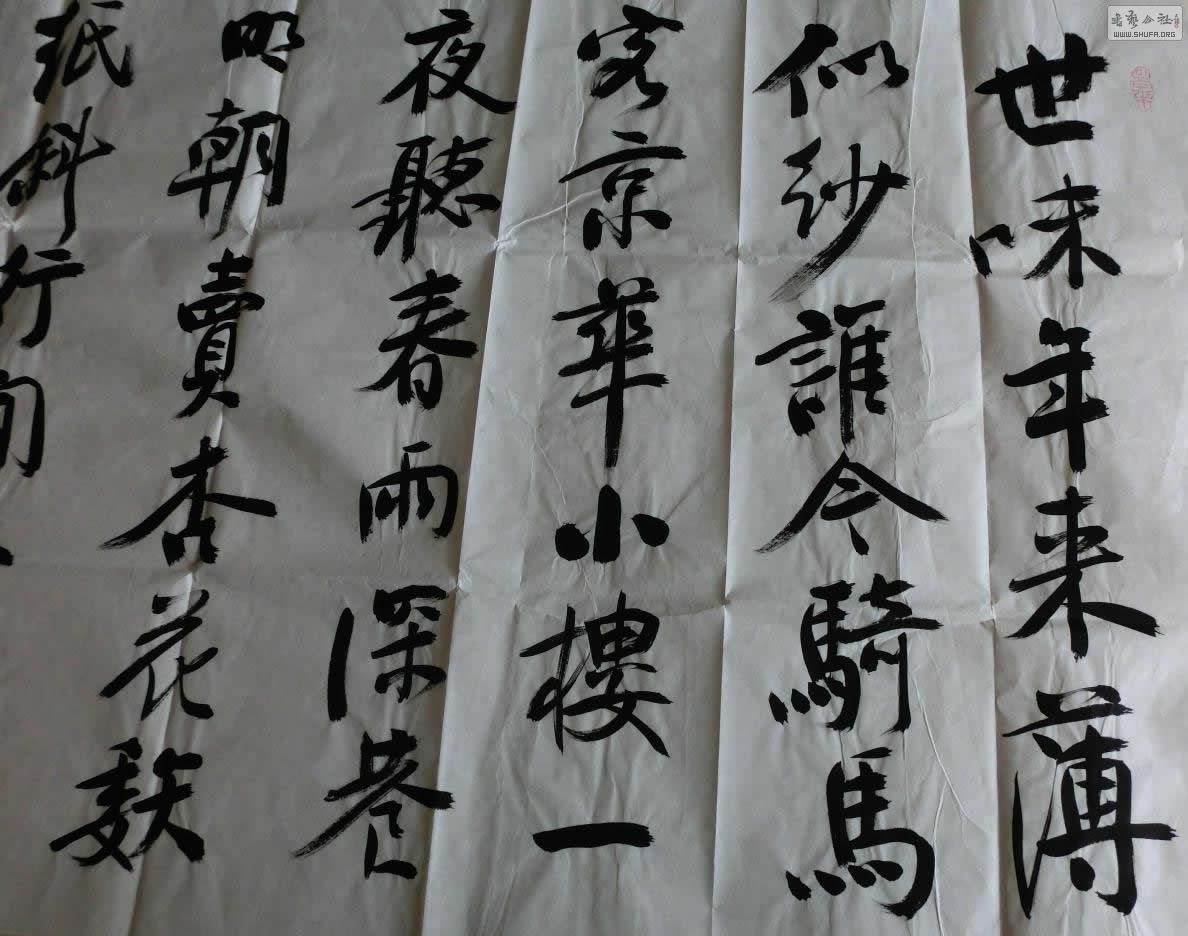 世味年来薄
似紗誰令騎馬
客京華小樓一
夜聽春雨深巷
明朝賣杏花矮
紙斜行
書藝公社
WWW.SHUFA.ORG